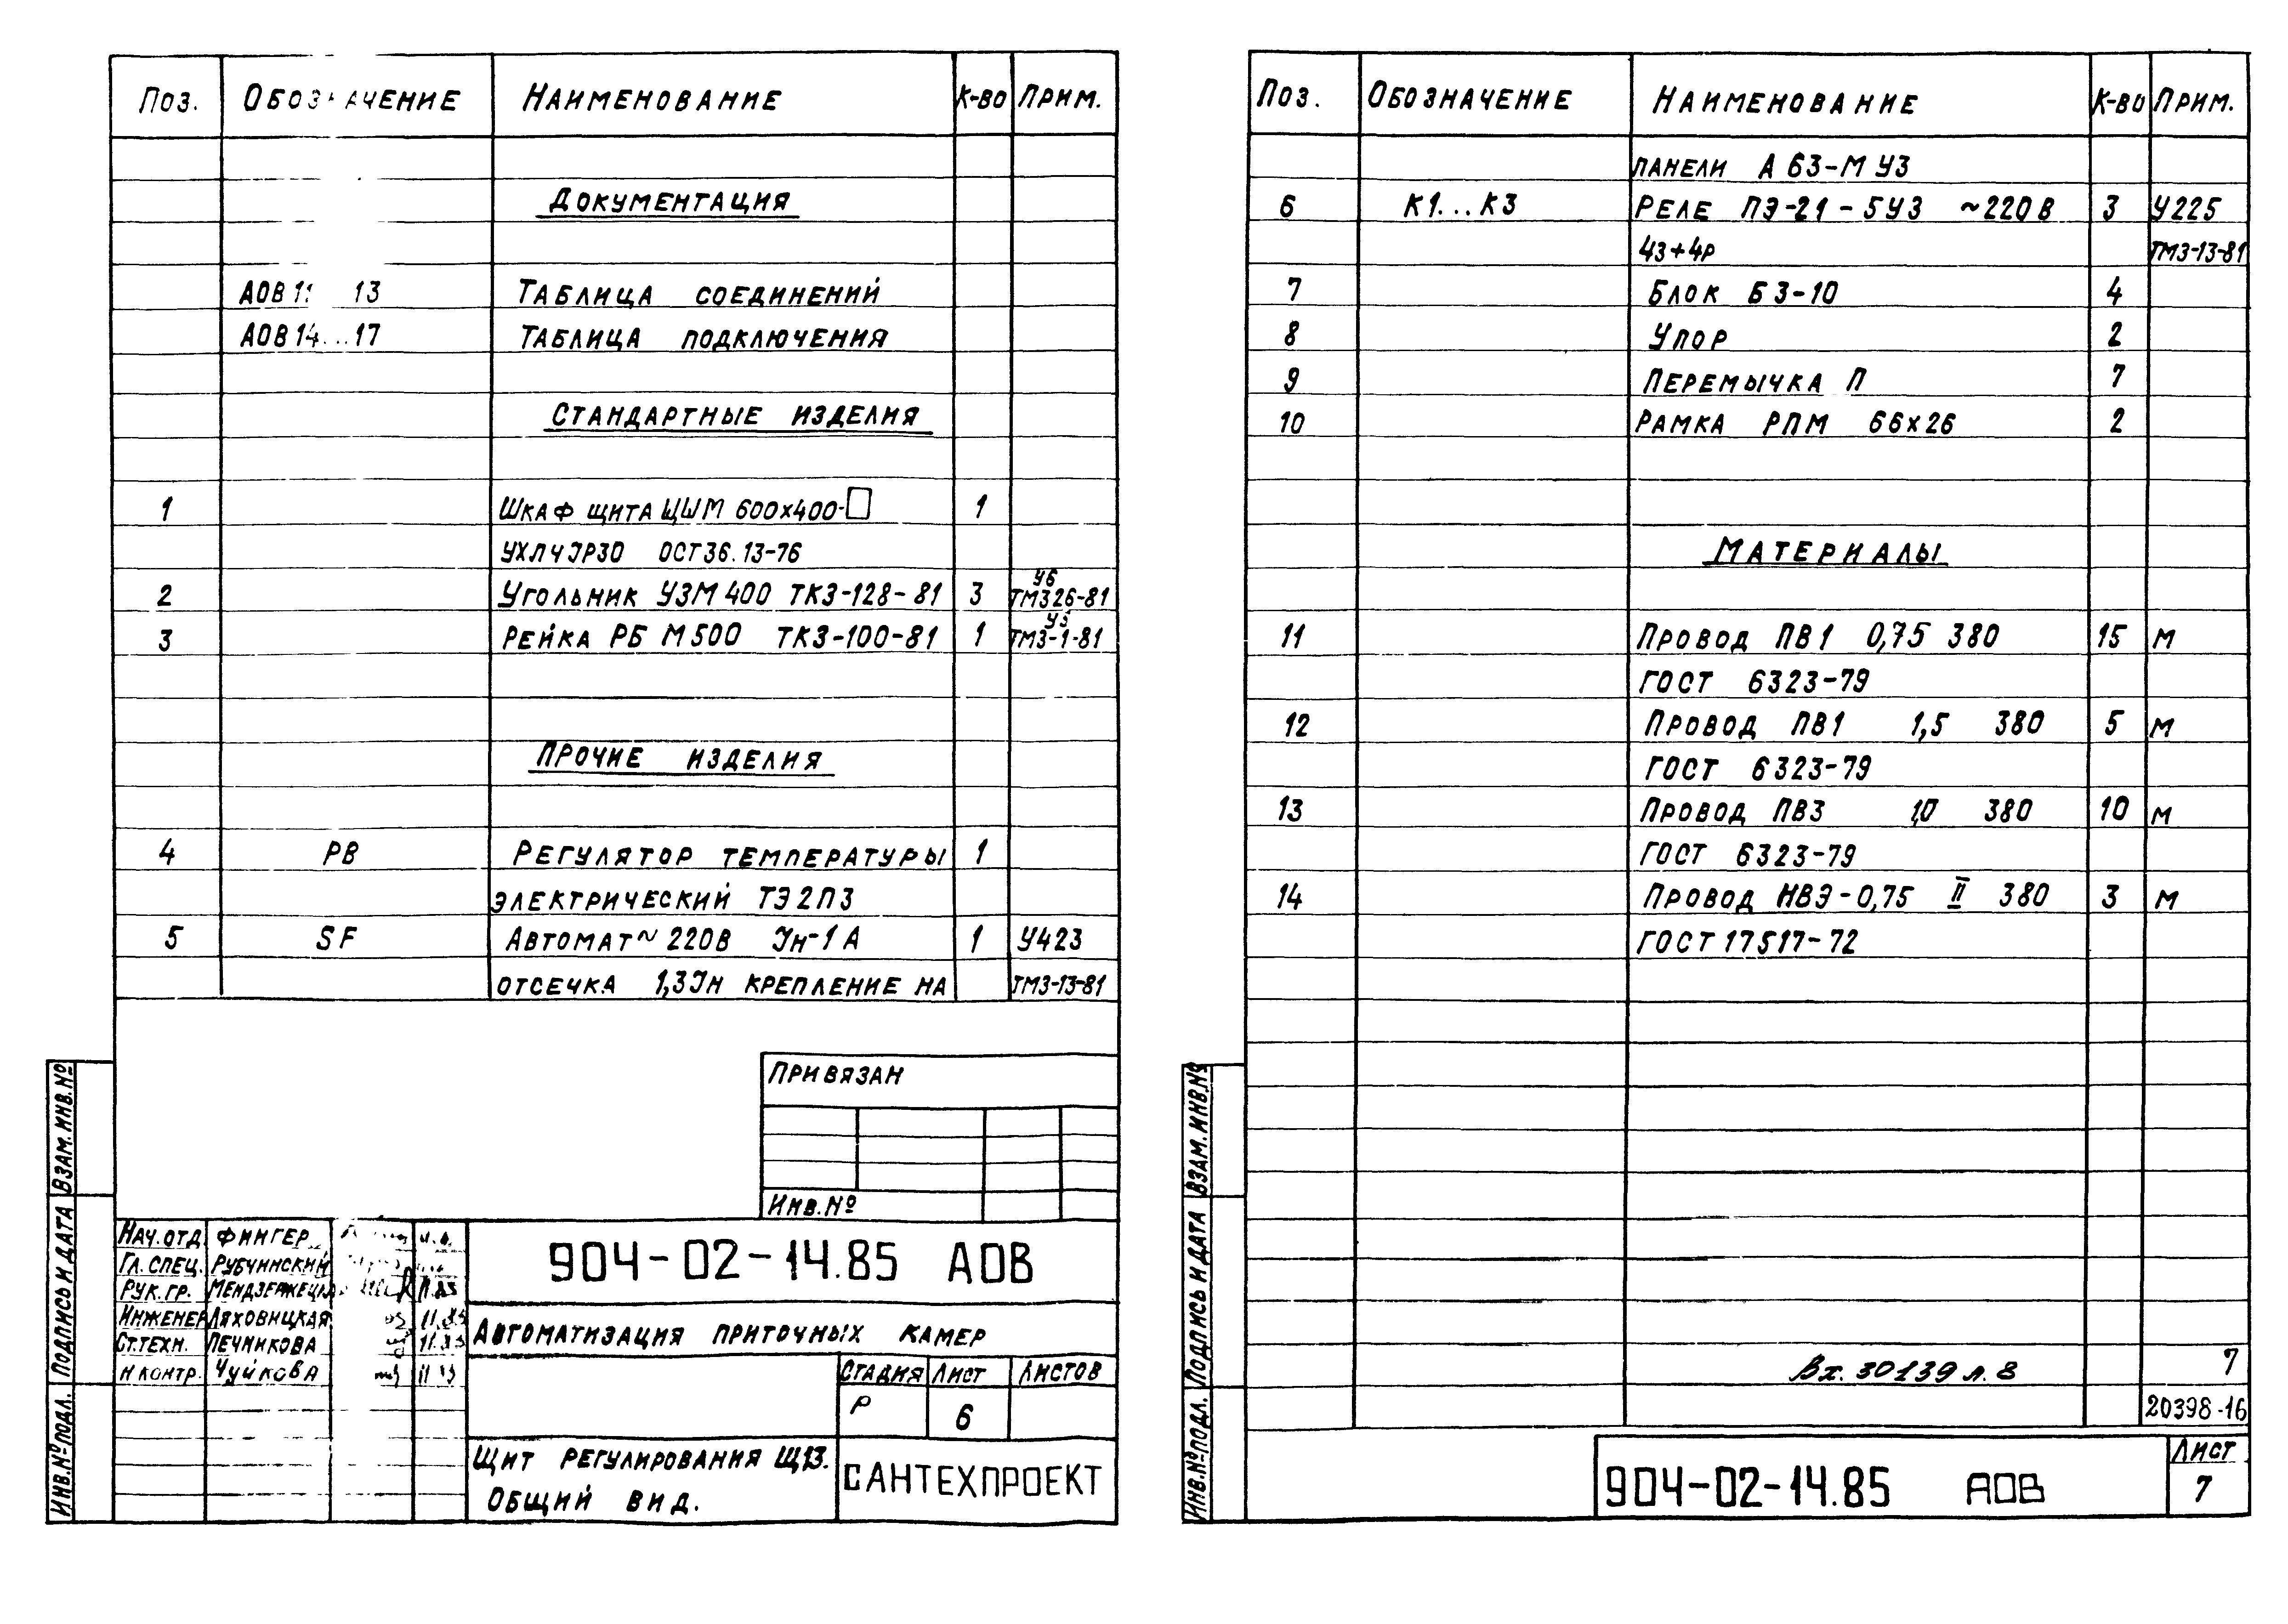 Поз. Обозначение Наименование К-во Прим.
Документация
АОВ 11 13 Таблица соединений
АОВ 14...17 Таблица подключения
Стандартные изделия
1 Шкаф щита ЩШМ 600х400-□ 1
УХЛЧ IP30 ОСТ 36.13-76
У6
2 Угольник УЗМ 400 ТКЗ-128-81 3 ТМ326-81
У5
3 Рейка РБ М500 ТКЗ-100-81 1 ТМ3-1-81
Прочие изделия
4 РВ Регулятор температуры 1
электрический ТЭ2П3
5 SF Автомат ~ 220В Iн-1А 1 У423
отсечка 1,3Iн крепление на ТМ3-13-81
Привязан
Инв.№
Взам. инв.№
Подпись и дата
Инв.№ подл.
Нач.отд. Фингер
Гл. спец. Рубчинский
Рук. гр.
Инженер Ляховицкая 11.85
Ст.техн. Печникова 11.85
Н контр. Чуйкова
904-02-14.85 АОВ
Автоматизация приточных камер
Стадия Лист Листов
Р 6
Щит регулирования Щ13.
Общий вид.
САНТЕХПРОЕКТ
Поз. Обозначение Наименование К-во Прим.
панели А 63-М У3
6 К1...К3 Реле ПЭ-21-5У3 ~220В 3 У225
4з+4р ТМ3-13-81
7 Блок Б3-10 4
8 Упор 2
9 Перемычка П 7
10 Рамка РПМ 66х26 2
Материалы
11 Провод ПВ1 0,75 380 15 м
ГОСТ 6323-79
12 Провод ПВ1 1,5 380 5 м
ГОСТ 6323-79
13 Провод ПВ3 1,0 380 10 м
ГОСТ 6323-79
14 Провод НВЭ-0,75 II 380 3 м
ГОСТ 17517-72
Вх. 30139 л. 8
7
20398-16
Взам. инв.№
Подпись и дата
Инв.№ подл.
904-02-14.85 АОВ
Лист
7